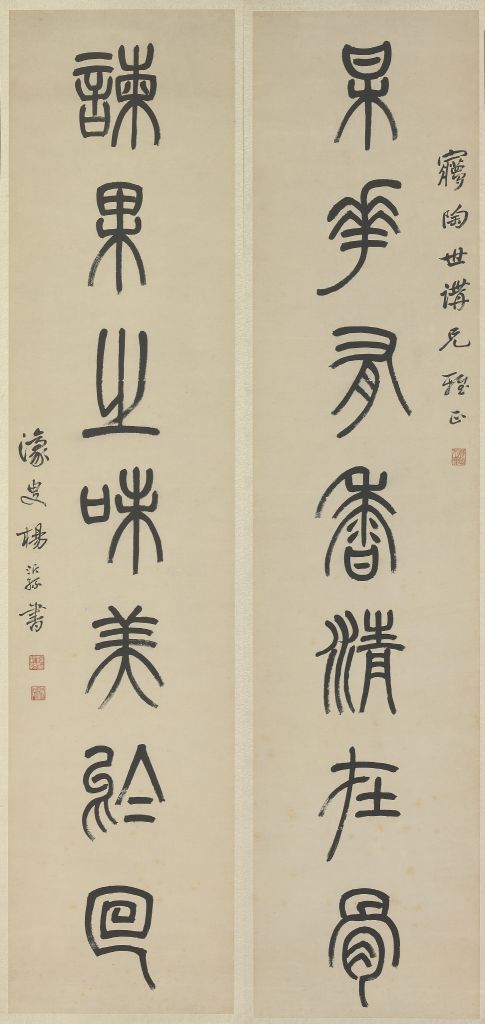 陶世講兄雅正
某華有香清在骨
諫果之味美於回
濠叟楊沂孫書